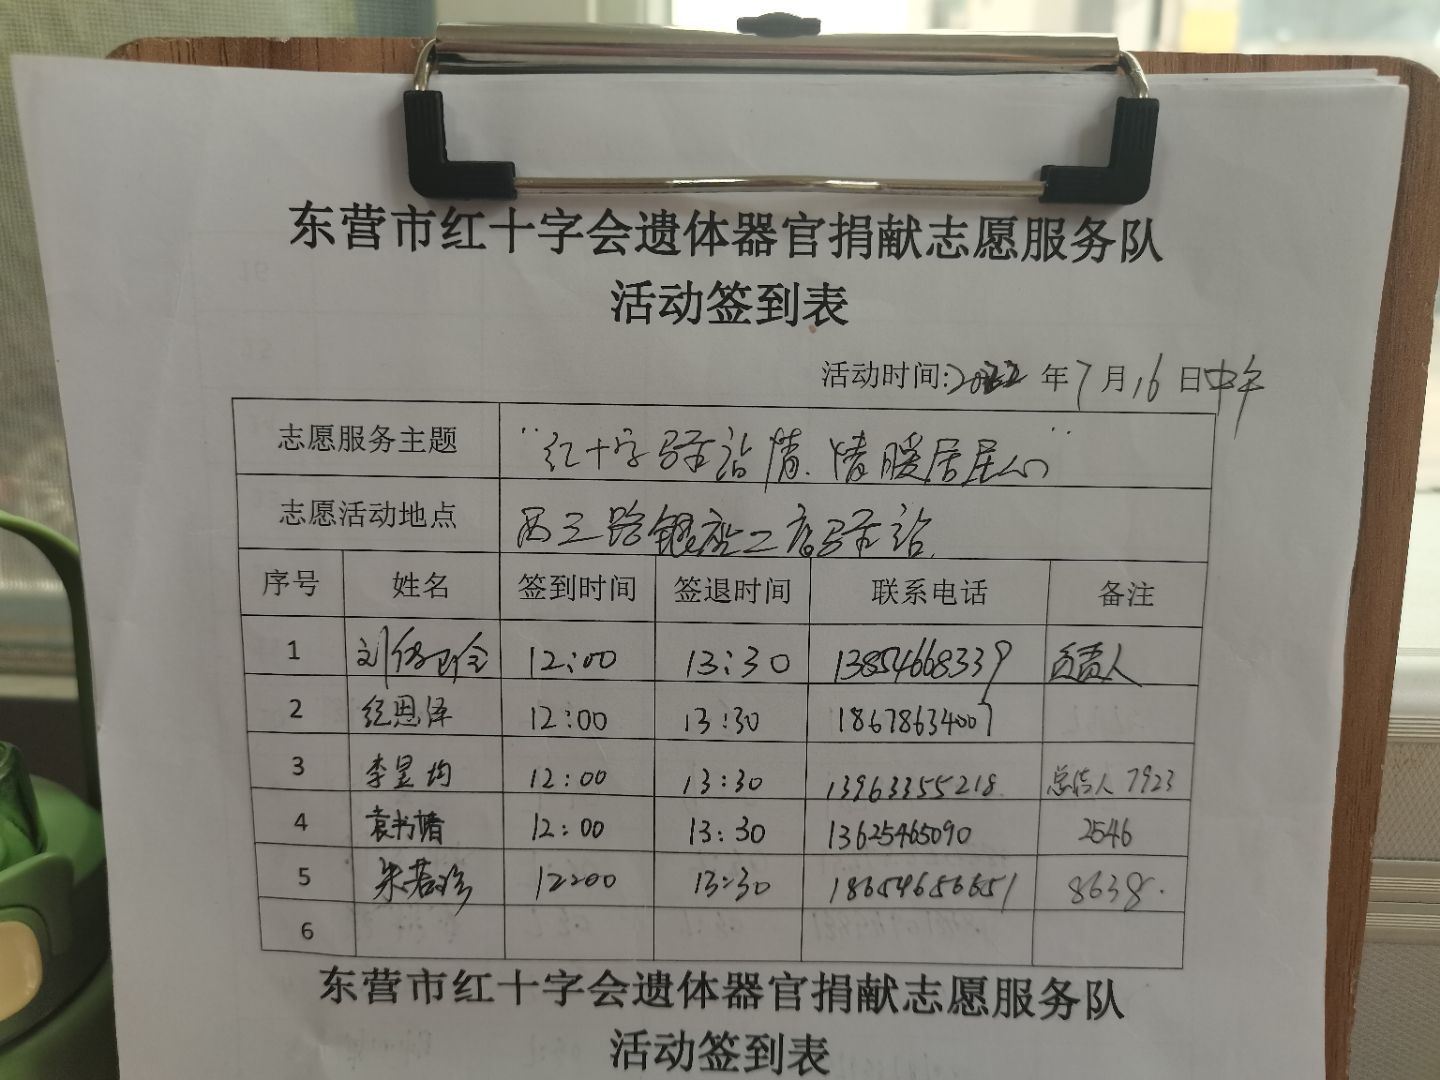 东营市红十字会遗体器官捐献志愿服务队
活动签到表
活动时间:2022年7月16日中午
志愿服务主题 "红十字驿站情.情暖居民心"
志愿活动地点 西三路银座二店驿站
序号 姓名 签到时间 签退时间 联系电话 备注
1 刘 12:00 13:30 13854668339 负责人
2 纪恩泽 12:00 13:30 18678634007
3 李昱均 12:00 13:30 13963355218 7923
4 袁书 12:00 13:30 13625465090 2546
5 朱若珍 12:00 13:30 18654656651 8638.
6
东营市红十字会遗体器官捐献志愿服务队
活动签到表